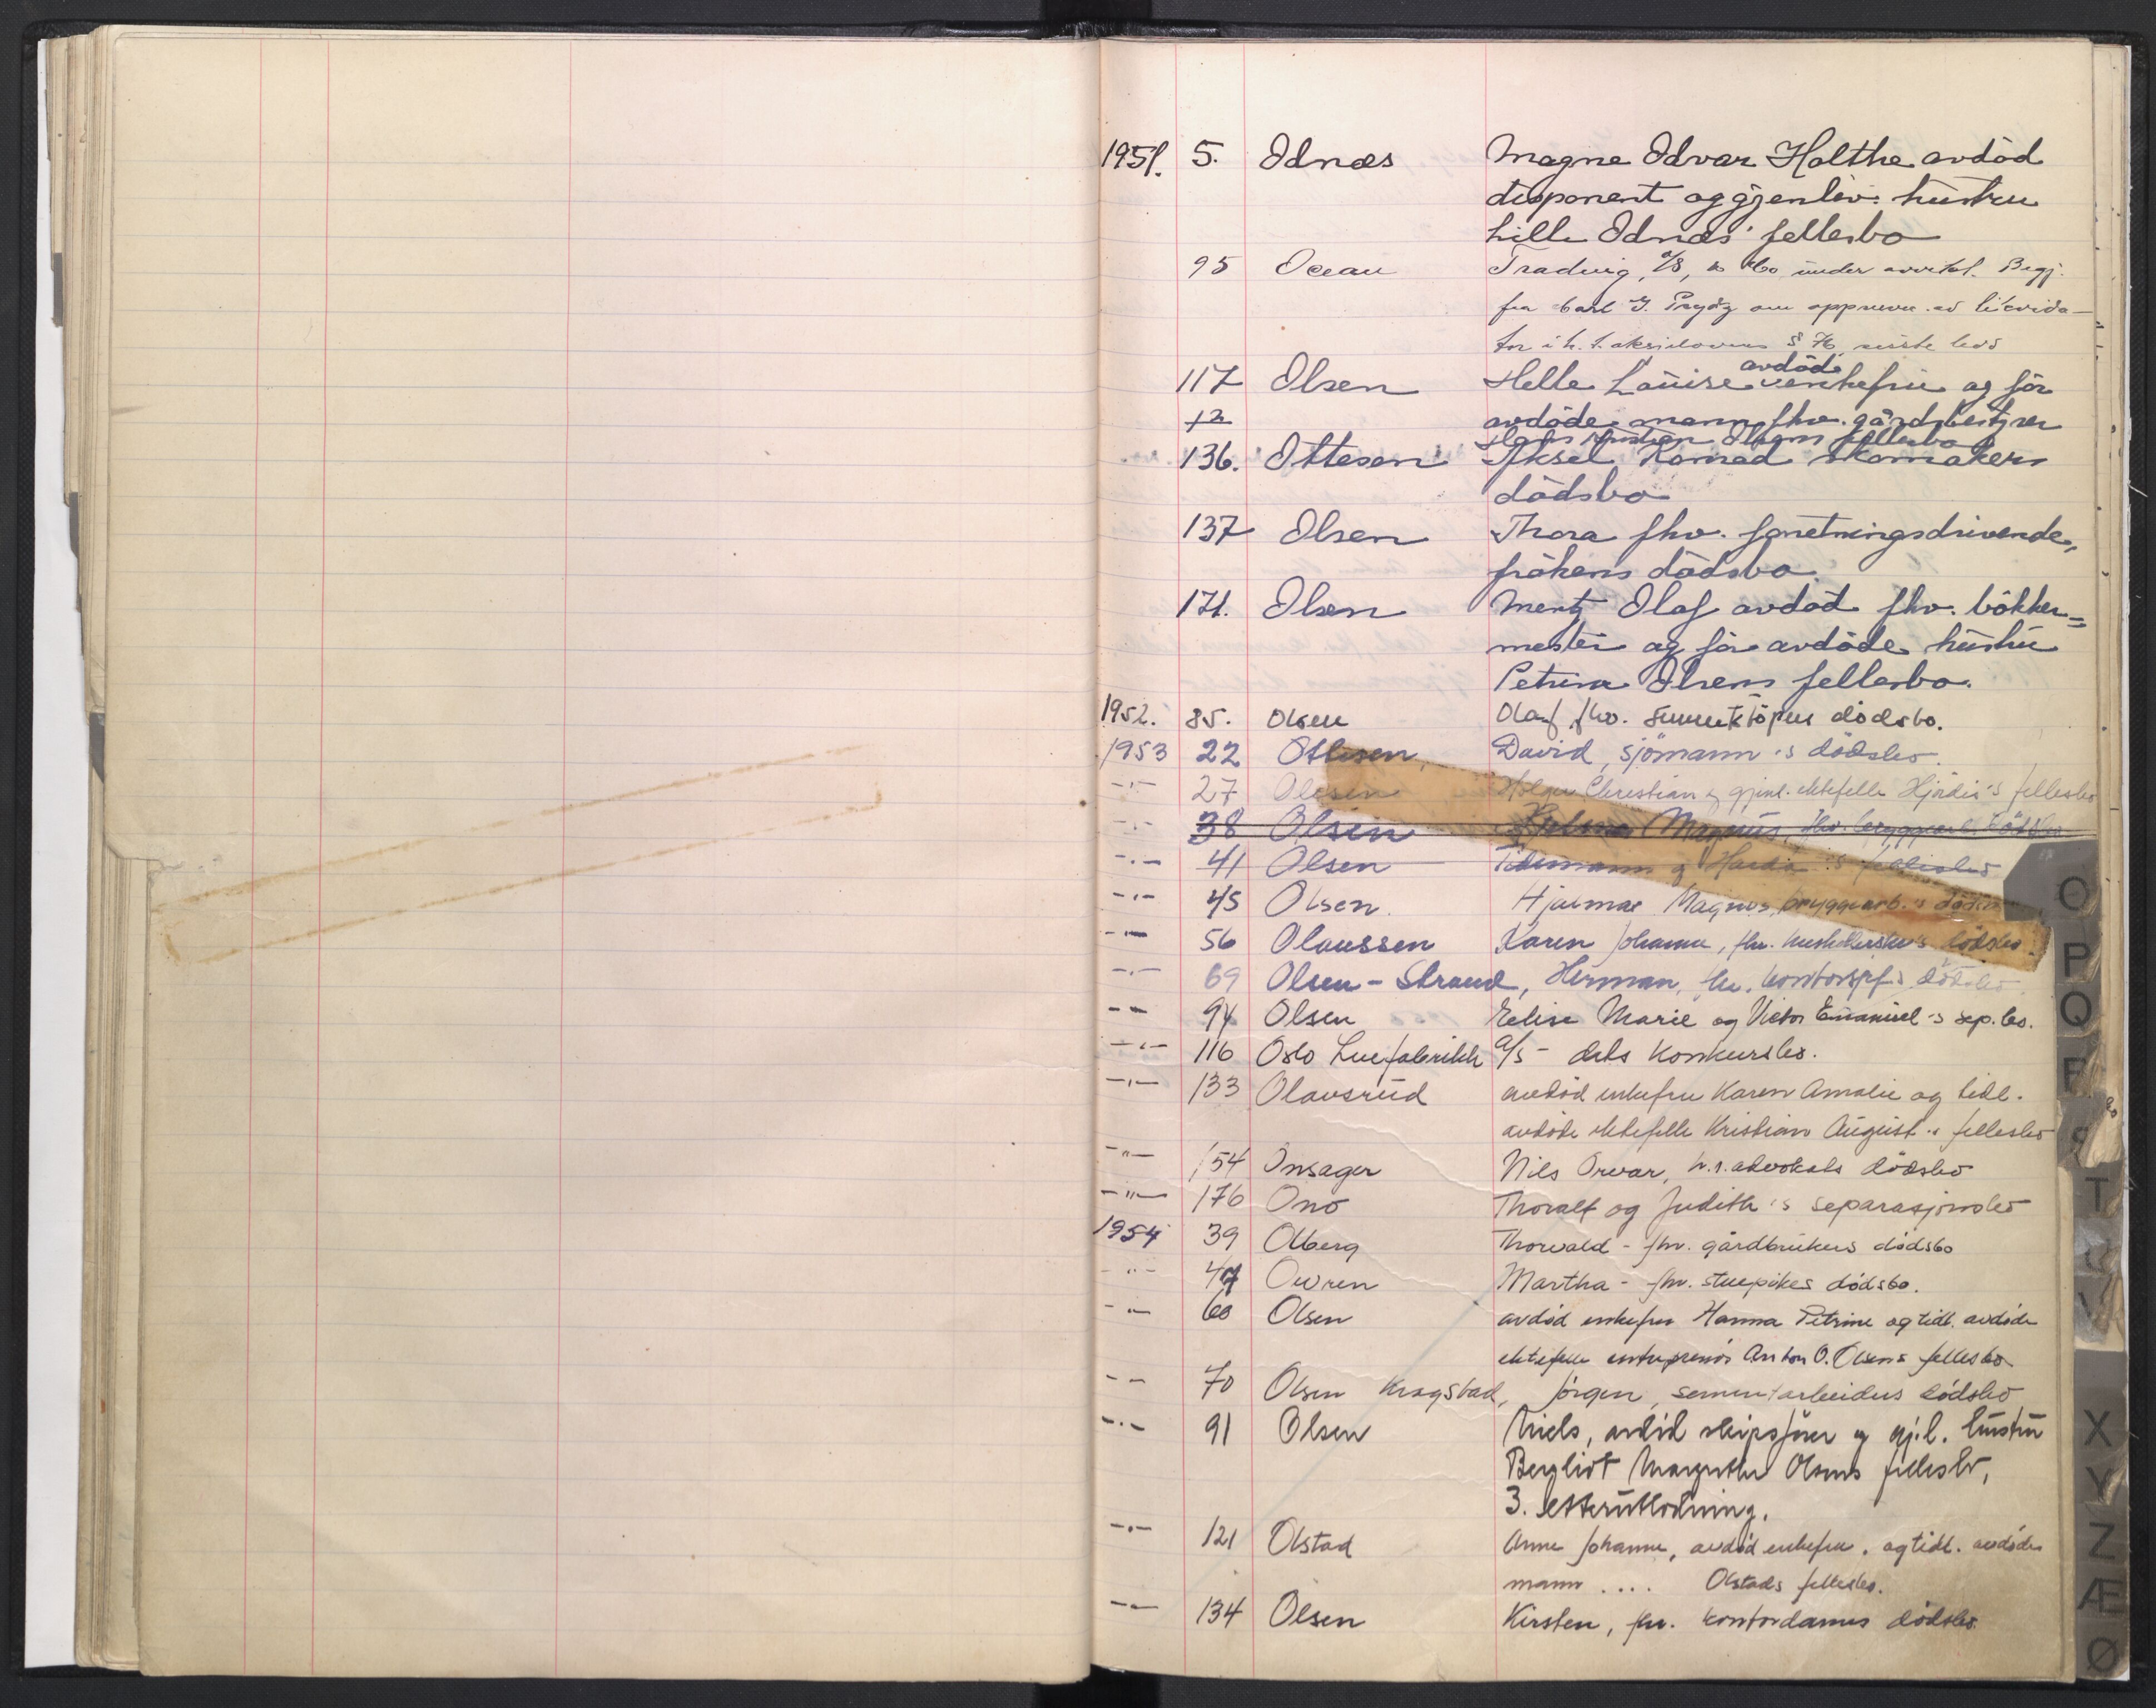 1951. 5. Odnæs Magne Odvar Holthe avdöd
disponent og gjenlev. hustru
Lilli Odnæs' fellesbo
95 Ocean Trading, A/S, bo under avvikl. Begj.
fra Carl J. Prydz om oppnevn. av likvida-
tor i h. t. aksjelovens § 76, siste ledd
117 Olsen Helle Louise avdöde enkefru og för
12 avdöde mann fhv. gårdsbestyrer
Hans Kristian Olsens fellesbo
136. Ottesen Aksel Konrad skomakers
dödsbo
137 Olsen Thora fhv. forretningsdrivende,
frökens dödsbo
171. Olsen Mentz Olaf avdöd fhv. bökker=
mester og för avdöde hustru
Petrine Olsens fellesbo.
1952. 85. Olsen Olaf fhv. dödsbo.
1953 22 Ottesen, David, sjömann's dödsbo.
-"- 27 Olsen Holger Christian og gjenl. ektefelle Hjördis's fellesbo
-"- 38 Olsen Hjalmar Magnus, fhv. bryggearb. dödsbo
-"- 41 Olsen Tidemann og 's fellesbo
-"- 45 Olsen. Hjalmar Magnus, bryggearb.'s dödsbo
-"- 56 Olaussen Karen Johanne, fhv. husholderske's dödsbo.
-"- 69 Olsen-Strand, Herman, fhv. kontorsjef's dödsbo.
-"- 94 Olsen Elise Marie og Victor Emanuel's sep.bo.
-"- 116 Oslo Luefabrikk A/S - dets konkursbo.
-"- 133 Olavsrud avdöd enkefru Karen Amalie og tidl.
avdöde ektefelle Kristian August's fellesbo
-"- 154 Onsager Nils Orvar, h.r.advokats dödsbo
-"- 176 Onö Thoralf og Judith's separasjonsbo
1954 39 Olberg Thorvald - fhv. gårdbrukers dödsbo
-"- 47 Owren Martha - fhv. stuepikes dödsbo.
-"- 60 Olsen avdöd enkefru Hanna Petrine og tidl. avdöde
ektefelle entreprenör Anton O. Olsens fellesbo
-"- 70 Olsen Kragstad, Jörgen, sementarbeiders dödsbo
-"- 91 Olsen Niels, avdöd skipsförer og gj.l. hustru
Bergliot Margrethe Olsens fellesbo,
3. etterutlodning.
-"- 121 Olstad Anne Johanne, avdöd enkefru. og tidl. avdöde
mann .... Olstads fellesbo.
-"- 134 Olsen Kirsten, fhv. kontordames dödsbo.
O
P
Q
R
S
T
U
V
X
Y
Z
Æ
Ø